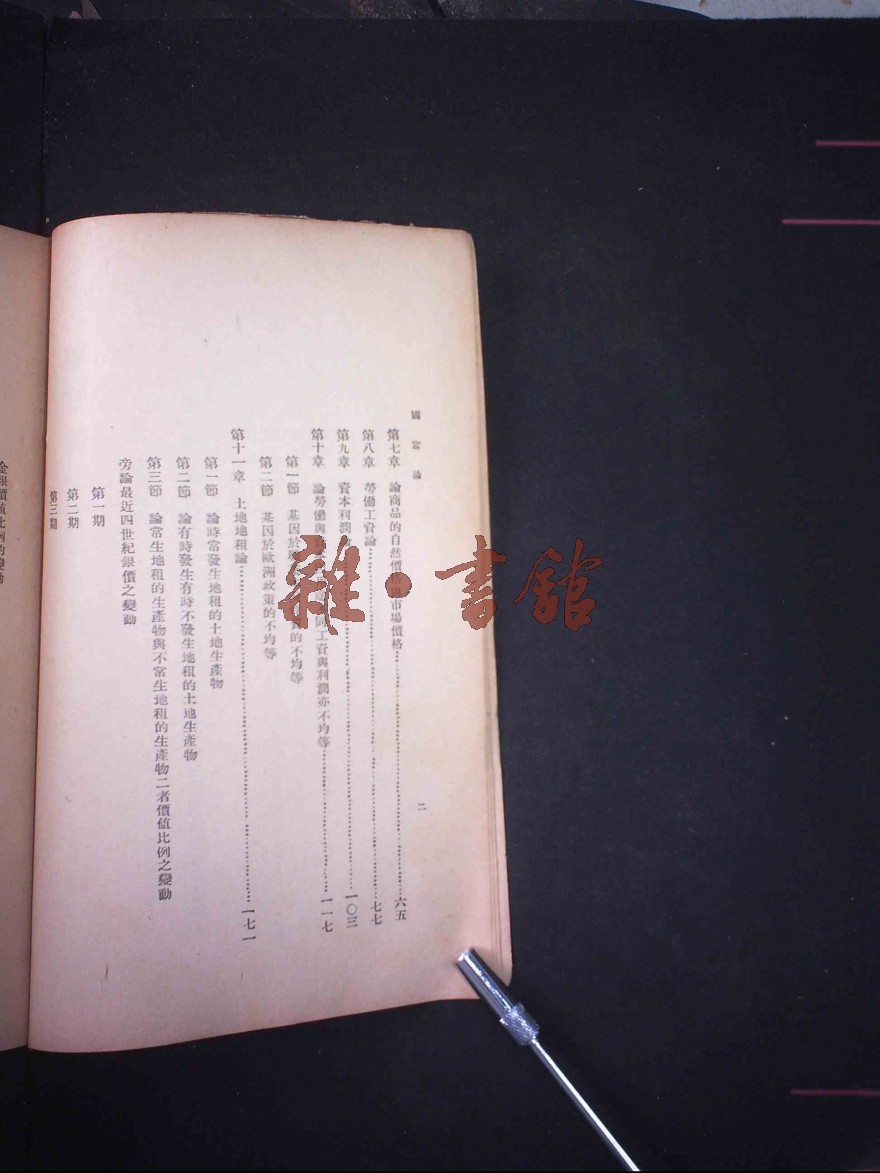 國富論
二
第七章 論商品的自然價格 市場價格……六五
第八章 勞働工資論……七七
第九章 資本利潤……一〇三
第十章 論勞働與 同工資與利潤亦不均等……一一七
第一節 基因於 的不均等
第二節 基因於歐洲政策的不均等
第十一章 土地地租論……一七一
第一節 論時常發生地租的土地生產物
第二節 論有時發生有時不發生地租的土地生產物
第三節 論常生地租的生產物與不常生地租的生產物二者價值比例之變動
旁論最近四世紀銀價之變動
第一期
第二期
第三期
金銀價值比例的變動
雜·書館